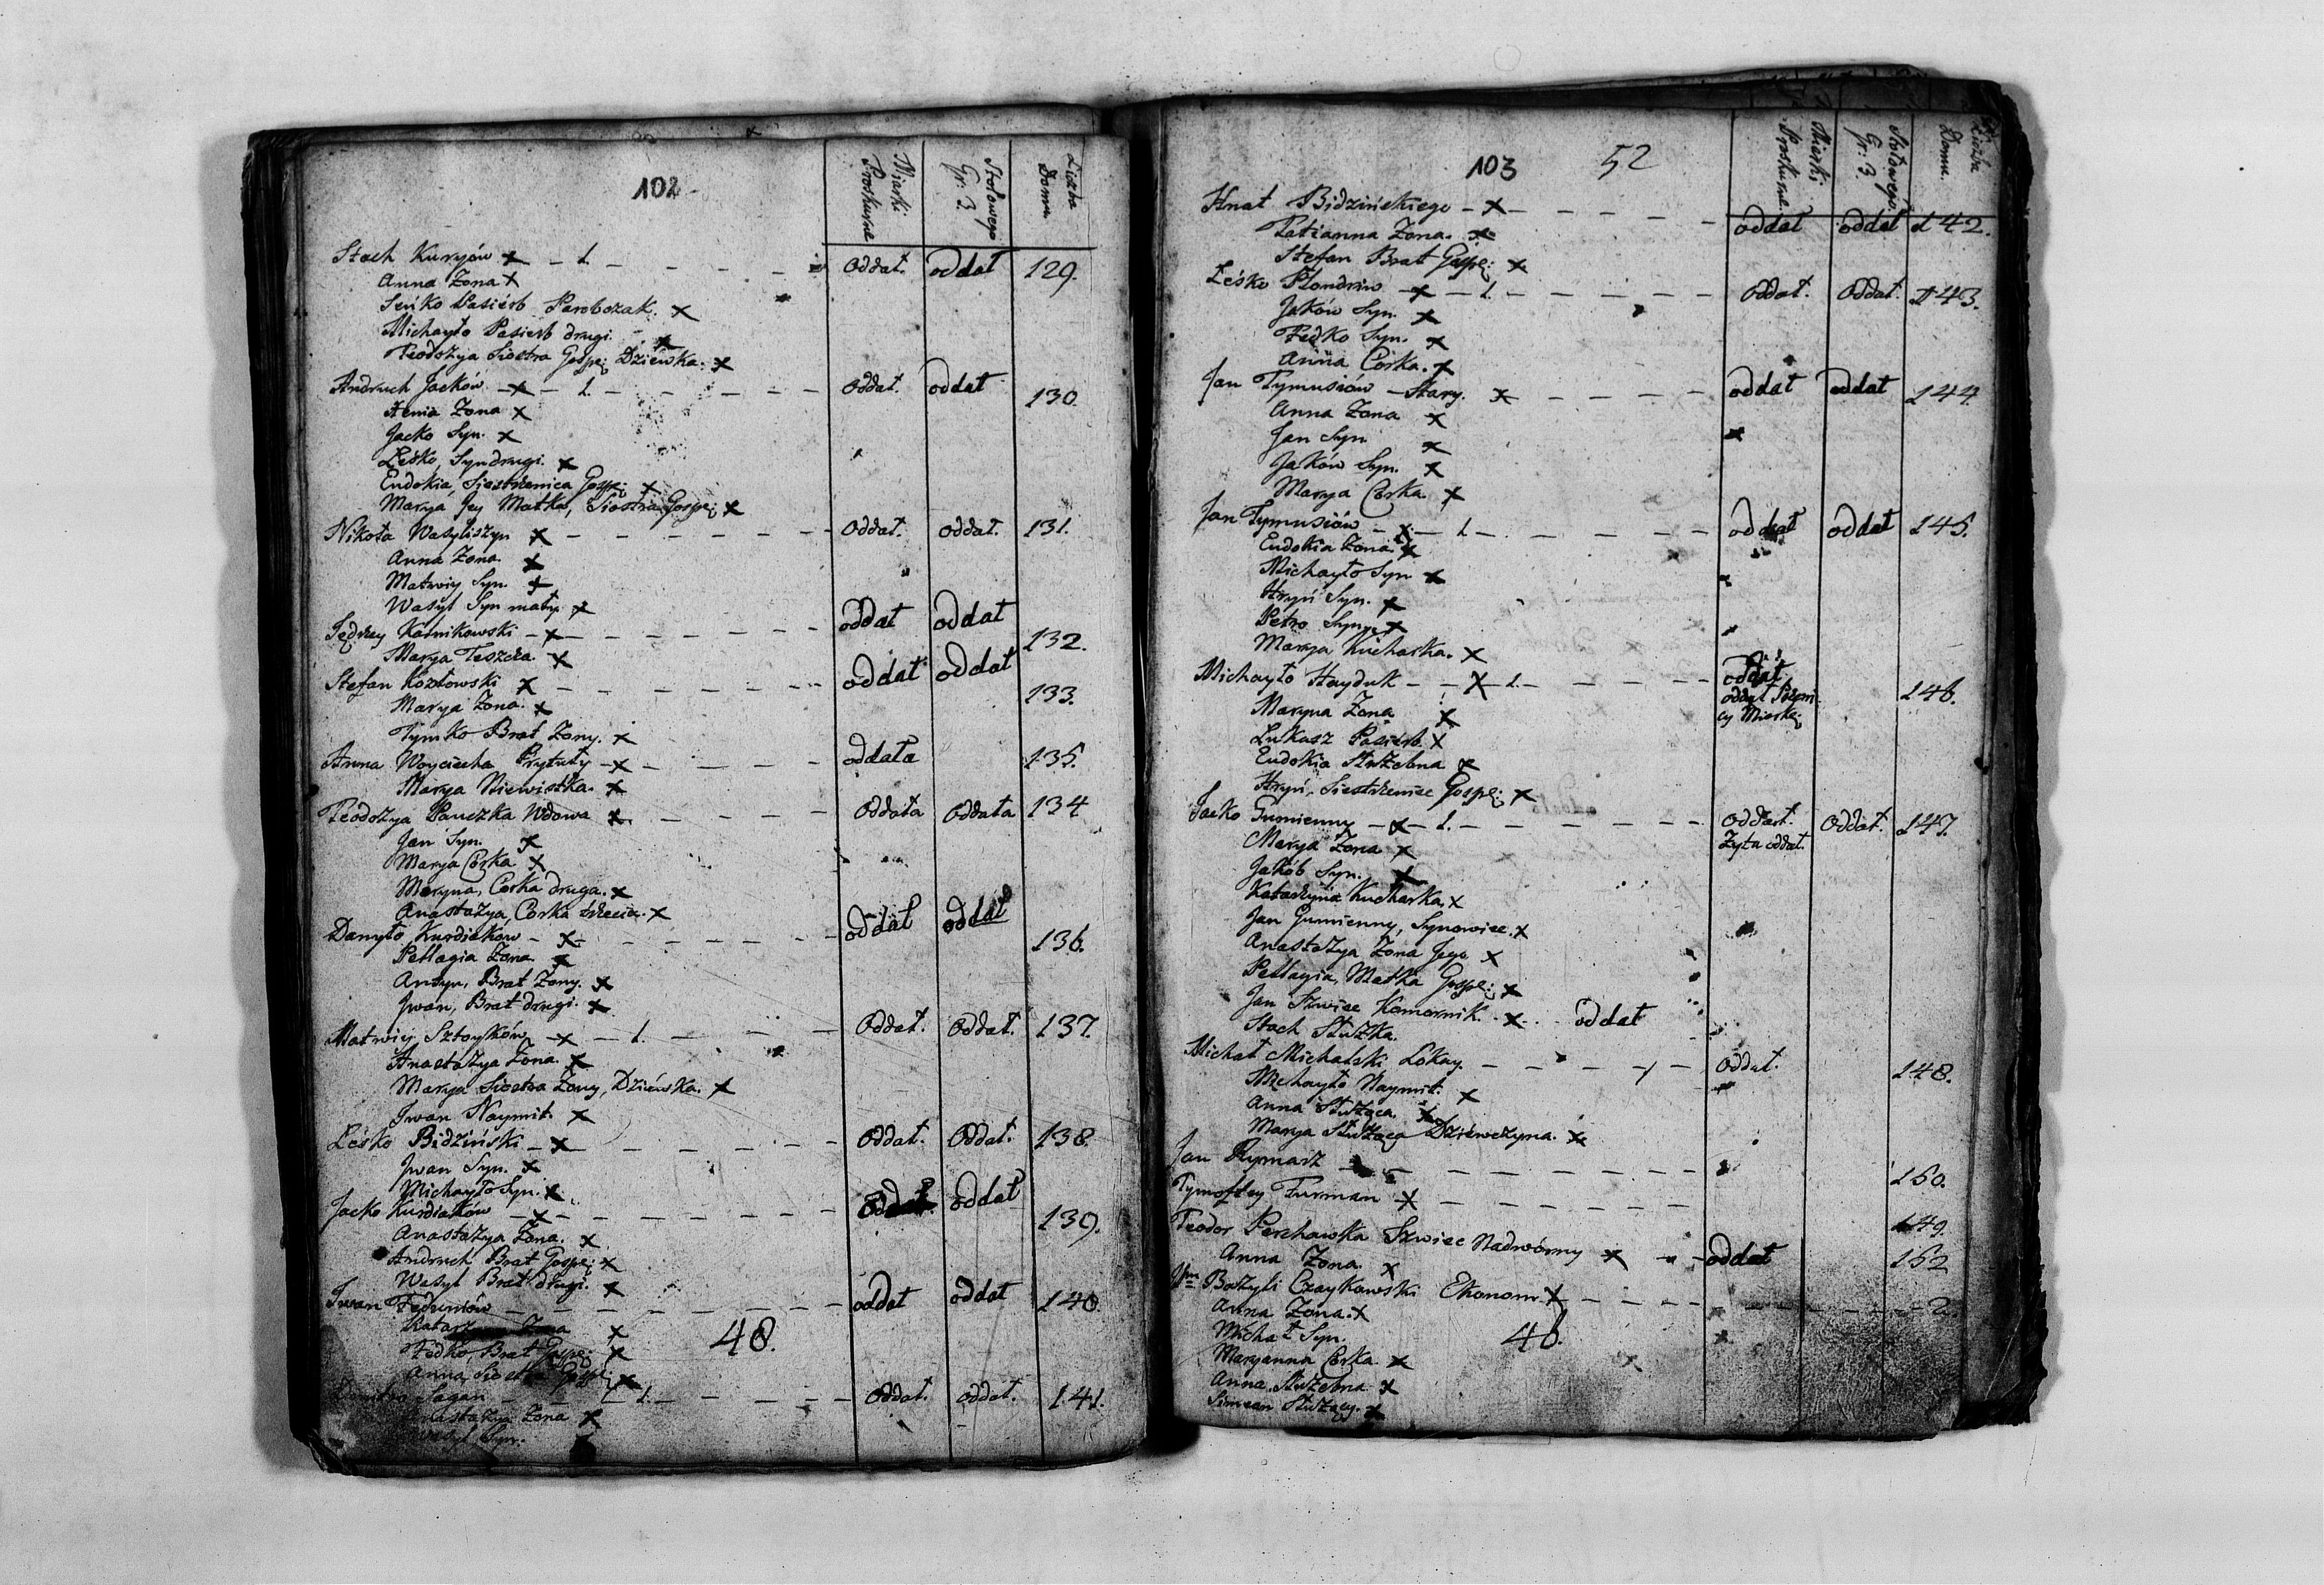 102
Miarki Proskurne
Stołowego Gr: 3
Liczba Domu
Stach Kuryów x – 1. – – – – oddał. oddał 129.
Anna Zona x
Seńko Pasierb Parobczak. x
Michayło Pasierb drugi. x
Teodozya Siostra Gospo: Dziewka. x
Andruch Jacków – x – 1. – – – – oddał. oddał 130.
Zona x
Jacko Syn. x
Leśko, Syn drugi. x
Eudokia, Siestrzenica Gosp: x
Marya Jey Matka, Siostra Gosp: x
Nikoła Wasyliszyn x – – – – oddał. oddał. 131.
Anna Zona. x
Matwiy Syn. x
Wasyl Syn mały. x
Jędrzey Kaśnikowski – x – – – – oddał oddał 132.
Marya Teszcza. x
Stefan Kozłowski x – – – – oddał oddał 133.
Marya Zona. x
Tymko Brat Zony. x
Anna Woyciecha Prytuły – x – – – – oddała 135.
Marya Niewistka. x
Teodozya Panczka Wdowa x – – – – oddała oddała 134
Jan Syn. x
Marya Corka. x
Maryna, Corka druga. x
Anastazya, Corka trzecia. x
Danyło Kurdiaków – x – – – – oddał oddał 136.
Pellagia Zona. x
Antyn, Brat Zony. x
Jwan, Brat drugi. x
Matwiy Sztoyków – x – 1. – – – oddał. oddał. 137.
Anastazya Zona. x
Marya Siostra Zony, Dziewka. x
Jwan Naymit. x
Leśko Bidziński – x – – – – oddał. oddał. 138.
Jwan Syn. x
Michayło Syn. x
Jacko Kurdiaków – x – – – – oddał. oddał 139.
Anastazya Zona. x
Andruch Brat Gospo: x
Wasyl Brat drugi. x
Jwan Feduniów – – – – – oddał oddał 140.
Zona x
48.
Fedko, Brat Gospo: x
Anna, Siostra Gosp: x
Sagan – – 1. – – – oddał. oddał. 141.
Anastazya Zona x
Wasyl Syn.
103 52
Miarki Proskurne.
Stołowego. Gr: 3.
Liczba Domu.
Hnat Bidzińskiego – x – – – – oddał oddał 142.
Tatianna Zona. x
Stefan Brat Gospo: x
Leśko Płondriw – x – 1. – – – – oddał. oddał. 143.
Jaków Syn. x
Fedko Syn. x
Anna Corka. x
Jan Tymusiów – Stary. x – – – – oddał oddał 144.
Anna Zona x
Jan Syn x
Jaków Syn. x
Marya Corka x
Jan Tymusiów – x – 1. – – – – oddał oddał 145.
Eudokia Zona. x
Michayło Syn x
Hryń Syn. x
Petro Syn. x
Marya Kucharka. x
Michayło Hayduk – – x 1. – – – – oddał 146.
oddał Pszeni-
cy Miarkę
Maryna Zona x
Łukasz Pasierb x
Eudokia Służebna x
Hryń, Siestrzeniec Gospo: x
Jacko Gumienny – x – 1. – – – – oddał. oddał. 147.
Zyta oddał.
Marya Zona x
Jakób Syn. x
Katarzyna Kucharka. x
Jan Gumienny, Synowiec. x
Anastazya Zona Jego x
Pellagia, Matka Gospo: x
Jan Szwiec Komornik. x oddał
Stach Służka.
Michał Michalski Lokay. – – – – oddał. 148.
Michayło Naymit. x
Anna Służąca. x
Marya Służąca Dziewczyna. x
Jan Rymarz – – – – – 150.
Tymoftey Furman x – – – – 149.
Teodor Perchawka Szwiec Nadwórny x – – oddał 152
Anna Zona. x
Jmc Bazyli Czaykowski Ekonom. x – – – – 2.
Anna Zona. x
Michał Syn. 46.
Maryanna Corka. x
Anna Służebna x
Simeon Służący. x